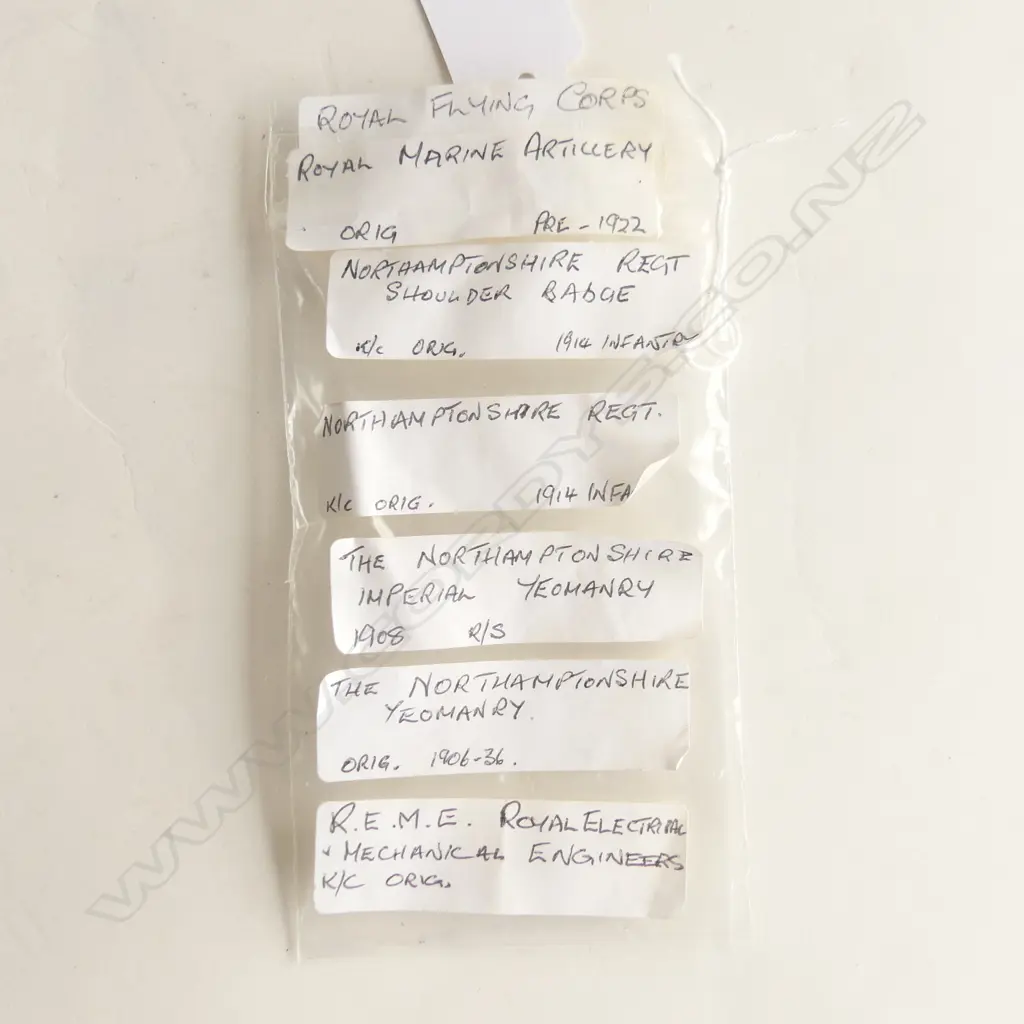 ROYAL FLYING CORPS
ROYAL MARINE ARTILLERY
ORIG PRE - 1922
NORTHAMPTONSHIRE REGT
SHOULDER BADGE
K/C ORIG. 1914 INFANTRY
NORTHAMPTONSHIRE REGT.
K/C ORIG. 1914 INFA
THE NORTHAMPTONSHIRE
IMPERIAL YEOMANRY
1908 R/S
THE NORTHAMPTONSHIRE
YEOMANRY.
ORIG. 1906-36.
R.E.M.E. ROYAL ELECTRICAL
+ MECHANICAL ENGINEERS
K/C ORIG.
WWW.CORDYS.CO.NZ